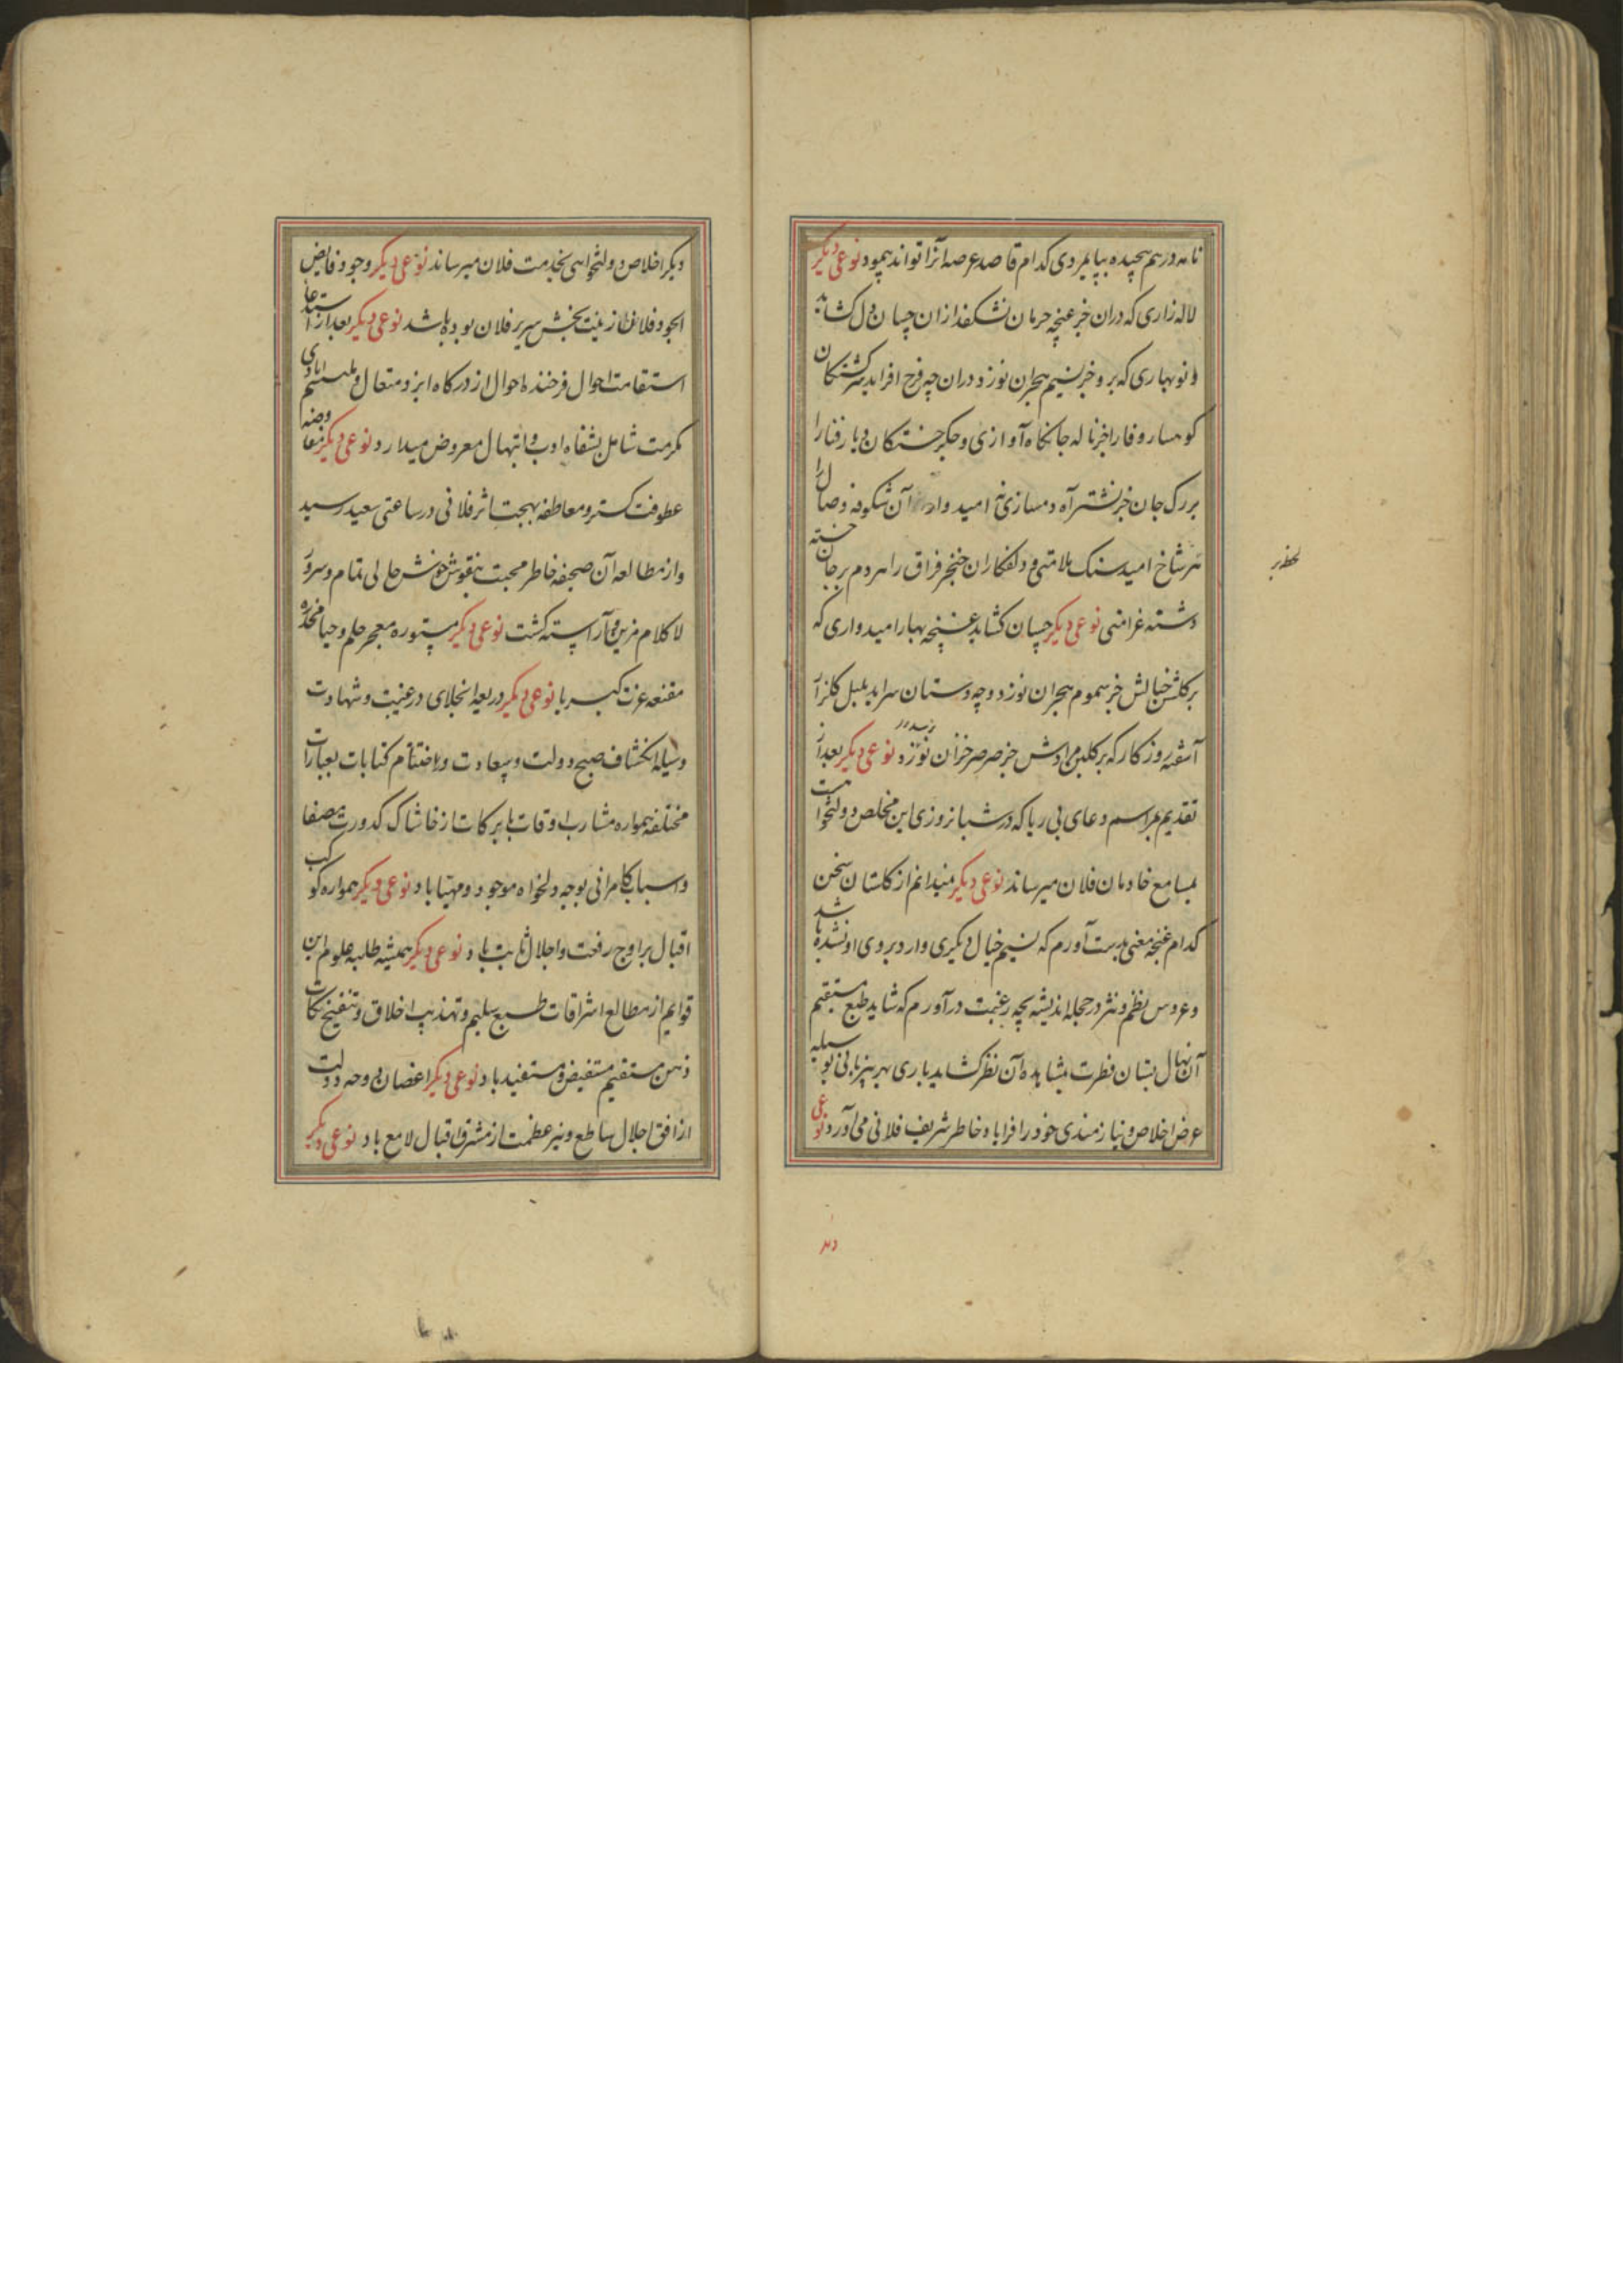 نامه درهم پیچیده بپایمردی کدام قاصد عرصه آنرا تواند پیمود نوعی دیکر
لاله زاری که دران خبر غنچه حرمان نشکفد ازان چسان دل کشاید
و نو بهاری که برو خبر نسیم هجران نوزد دران چه فرح افزاید سرکشتکان
کوهسار وفا را خبر ناله جانکاه آوازی و جکر خستکان دیار فنا را
بر رک جان خبر نشتر آه دمسازی نه امید وار آن شکوفه وصال را
بر شاخ امید سنک ملامتی و دلفکاران خنجر فراق را هر دم بر جان خسته
لحظه بر
دشنه غرامتی نوعی دیکر چسان کشاید غنچه بهار امیدواری که
بر کلشن خیالش خبر سموم هجران نوزد و چه دستان سراید بلبل کلزار
آشفته روزکار که بر کلبن مرادش جز صرصر خزان نوزد نوعی دیکر بعد از
تقدیم مراسم دعای بی ریا که در شبانروزی این مخلص دولتخواست
بمسامع خادمان فلان میرساند نوعی دیکر نمیدانم از کلستان سخن
کدام غنجه معنی بدست آورم که نسیم خیال دیکری وارد بر روی او نشده باشد
و عروس نظم و نثر در حجله اندیشه بچه رغبت درآورم که شاید طبع مستقیم
آن نهال بستان فطرت بمشاهده آن نظر کشاید باری بهر بی زبانی بوسیله
عرض اخلاص و نیازمندی خود را فرا یاد خاطر شریف فلانی می آورد نوعی
دیکر اخلاص و دولتخواهی بخدمت فلان میرساند نوعی دیکر وجود فایض
الجود فلان زینت بخش سریر فلان بوده باشد نوعی دیکر بعد از استدعا
استقامت احوال فرخنده احوال از درکاه ایزد متعال و تلثیم ایادی
مکرمت شامل بشفاه ادب و ابتهال معروض میدارد نوعی دیکر مفاوضه
عطوفت کستر و معاطفه بهجت اثر فلانی در ساعتی سعید رسید
و از مطالعه آن صحیفه خاطر محبت بنقوش خوش حالی تمام و سرور
لا کلام مزین و آراسته کشت نوعی دیکر مستوره معجر حلم و حیا مخدره
مقنعه عزت کبریا نوعی دیکر ذریعه انجلای در غیبت و شهادت
وسیله انکشاف صبح دولت و سعادت و اختتام کتابات بعبارات
مختلفه همواره مشارب اوقات با برکات از خاشاک کدورت مصفا
و اسباب کامرانی بوجه دلخواه موجود و مهیا باد نوعی دیکر همواره کوکب
اقبال بر اوج رفعت و اجلال ثابت باد نوعی دیکر همیشه طلبه علوم این
قوایم از مطالع اشراقات طبع سلیم و تهذیب اخلاق و تنقیح نکات
ذهن مستقیم مستفیض و مستفید باد نوعی دیکر اغصان دوحه دولت
از افق اجلال ساطع و نیر عظمت از مشرق اقبال لامع باد نوعی دیکر